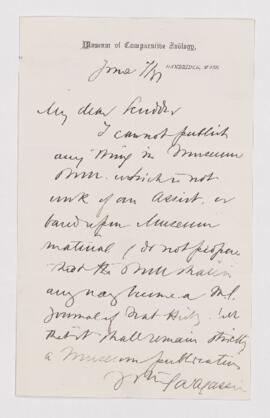 Museum of Comparative Zoölogy,
CAMBRIDGE, MASS.
June 7/81
My dear Scudder
I cannot publish
anything in Museum
Bull. which is not
work of an Assist. or
based upon Museum
material I do not propose
that the Bull shall in
any way become a
Journal of Nat Hist. but
that it shall remain strictly
a Museum publication
Yrs